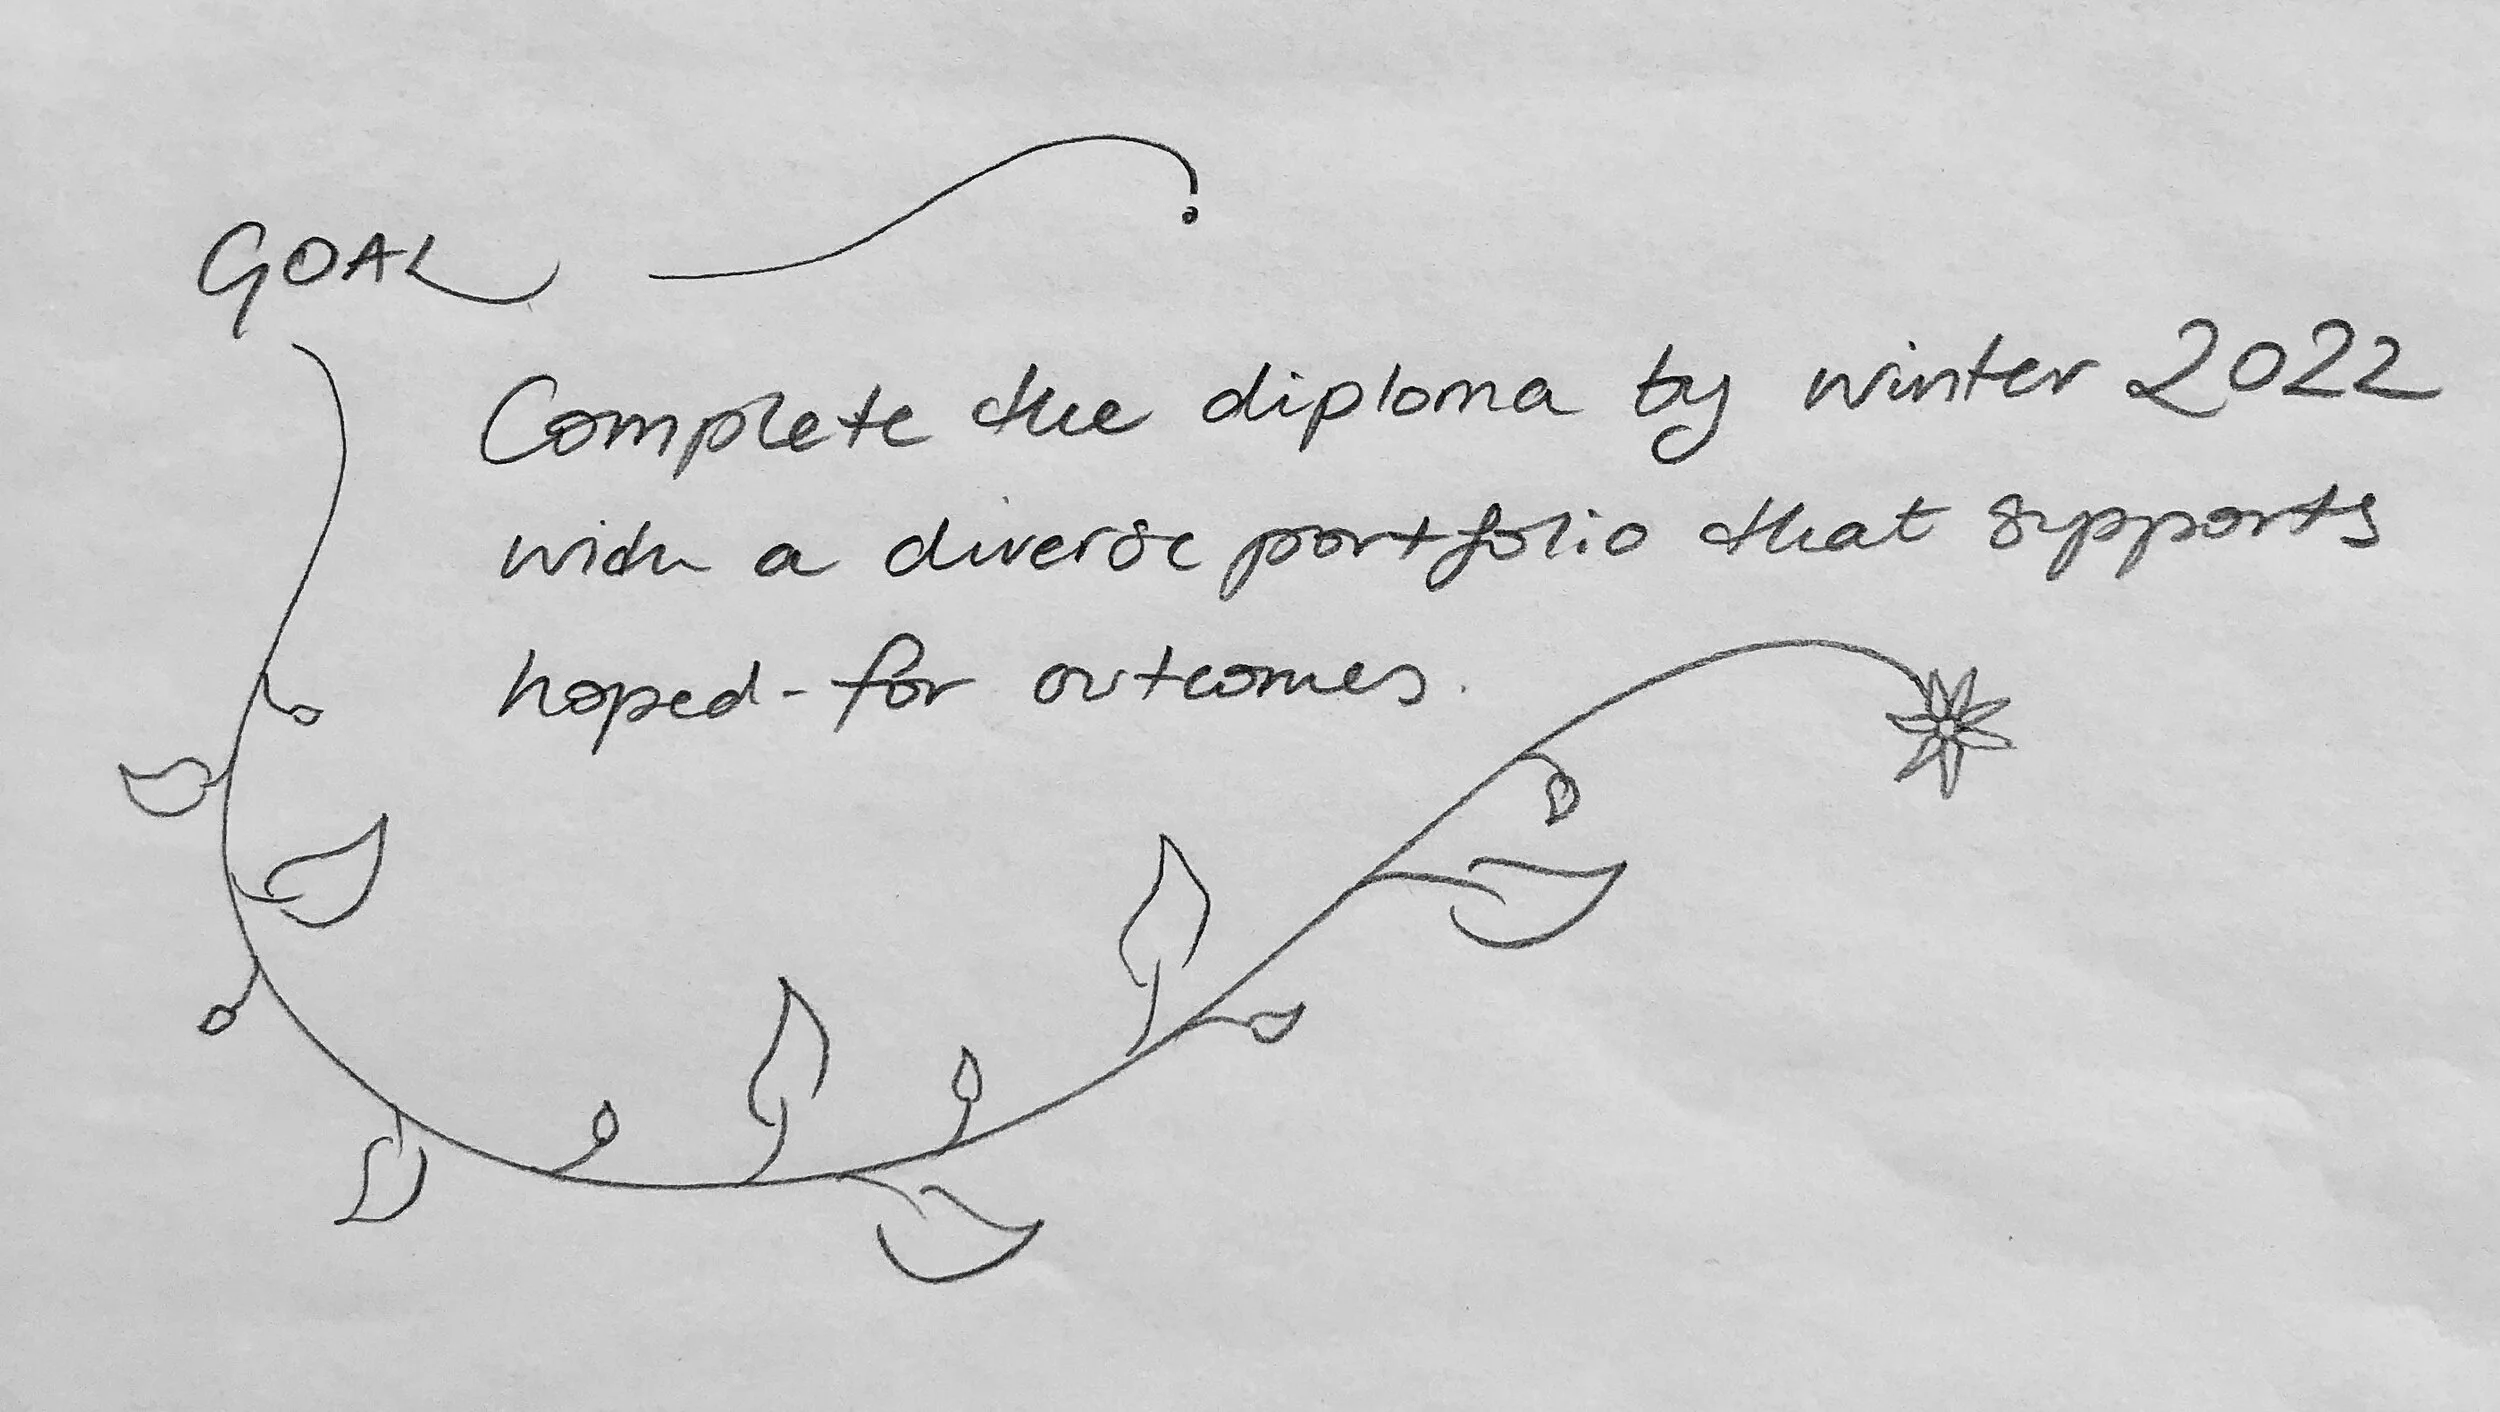 GOAL
Complete the diploma by winter 2022
with a diverse portfolio that supports
hoped-for outcomes.